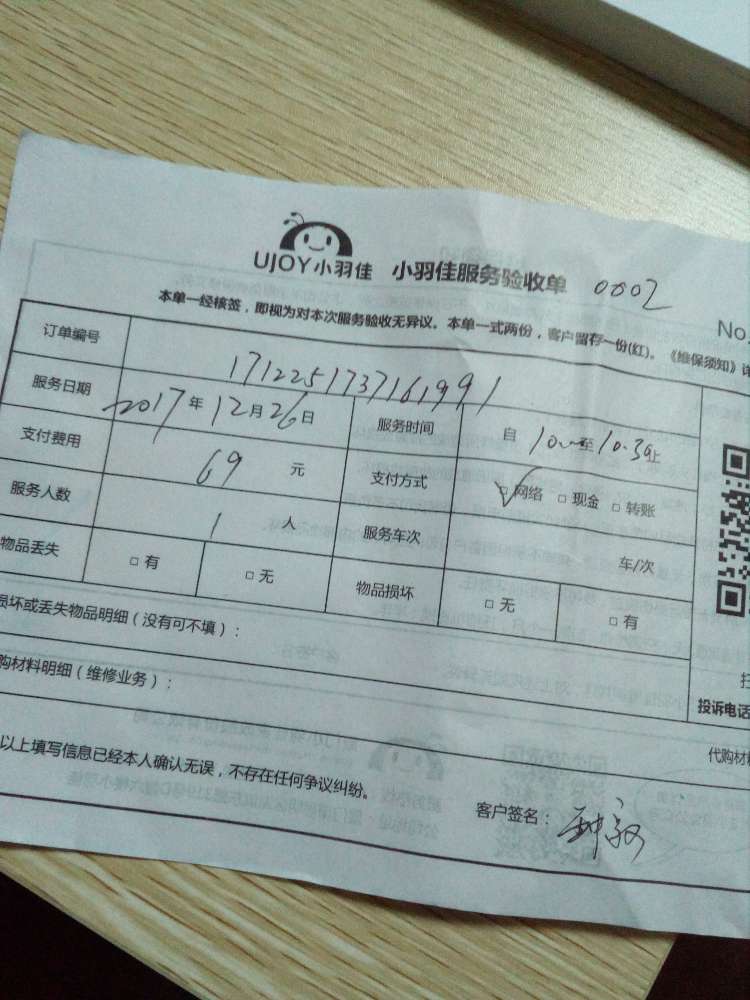 UJOY小羽佳 小羽佳服务验收单 0002
No.
本单一经核签，即视为对本次服务验收无异议。本单一式两份，客户留存一份(红)。《维保须知》详
订单编号 1712251737161991
服务日期 2017年12月26日 服务时间 自10:00至10:30止
支付费用 69元 支付方式 ☑网络 □现金 □转账
服务人数 1人 服务车次 车/次
物品丢失 □有 □无 物品损坏 □无 □有
损坏或丢失物品明细（没有可不填）：
购材料明细（维修业务）：
投诉电话
代购材料
以上填写信息已经本人确认无误，不存在任何争议纠纷。
客户签名：